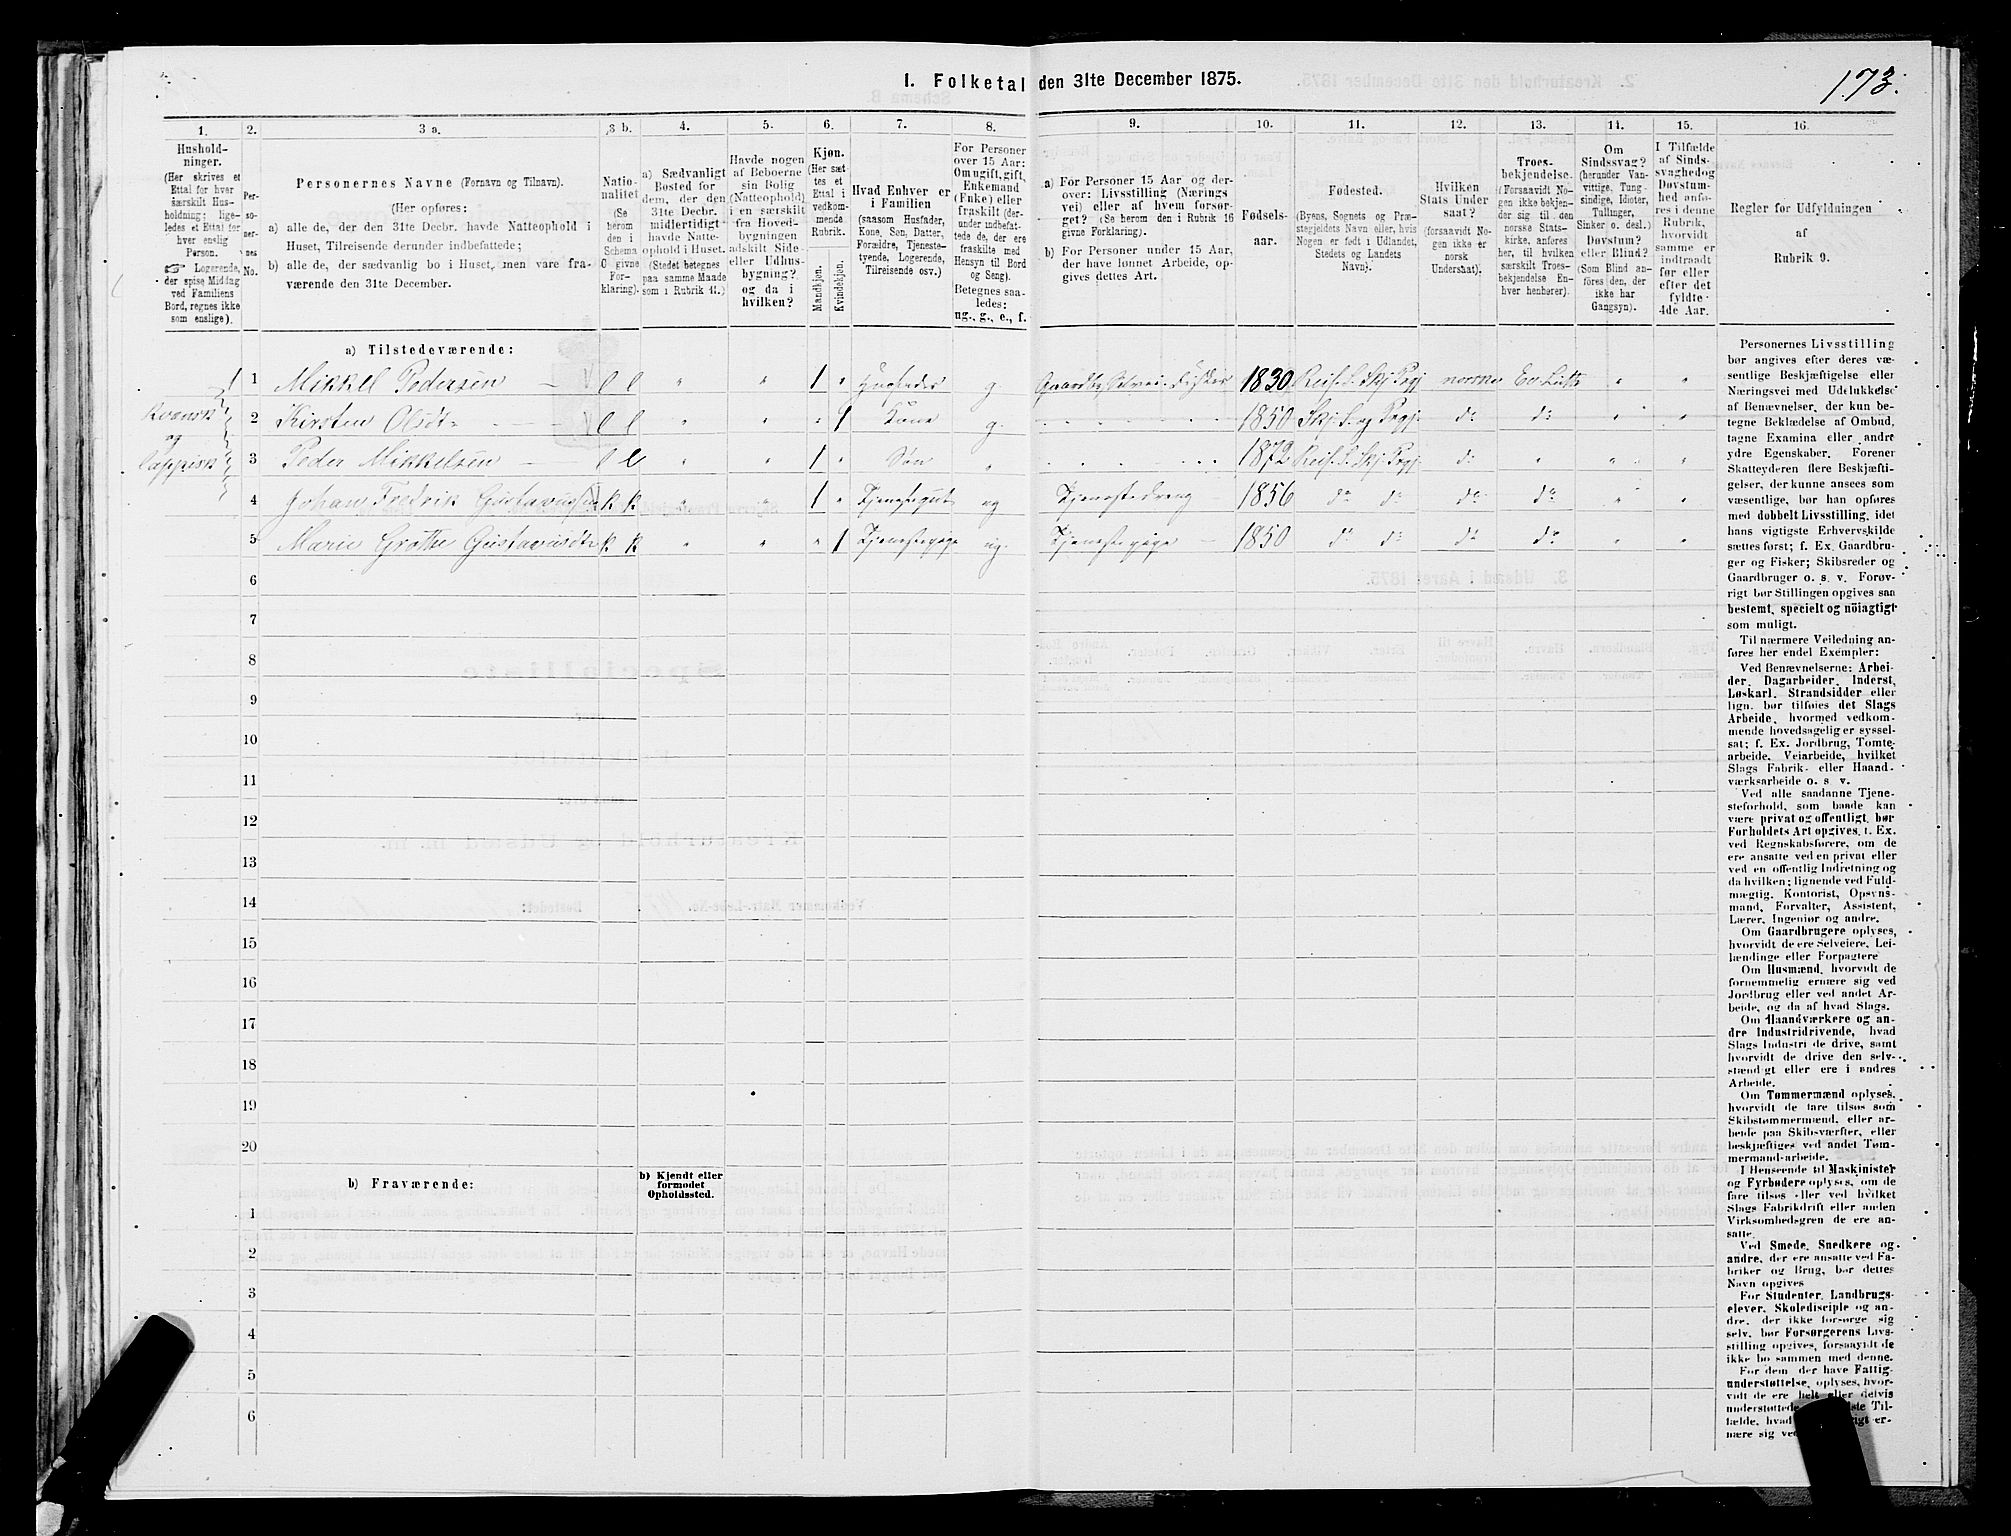 I. Folketal den 31te December 1875.
173.
1.
Hushold-
ninger.
(Her skrives et
Ettal for hver
særskilt Hus-
holdning; lige-
ledes et Ettal for
hver enslig
Person.
☞ Logerende,
der spise Middag
ved Familiens
Bord, regnes ikke
som enslige).
2.
Per-
so-
ner-
nes
No.
3 a.
Personernes Navne (Fornavn og Tilnavn).
(Her opføres:
a) alle de, der den 31te Decbr. havde Natteophold i
Huset, Tilreisende derunder indbefattede;
b) alle de, der sædvanlig bo i Huset, men vare fra-
værende den 31te December.
3 b.
Natio-
nalitet
(Se
herom
den i
Schema
C givne
For-
klaring).
4.
a) Sædvanligt
Bosted for
dem, der den
31te Decbr.
midlertidigt
havde Natte-
ophold i Huset.
(Stedet betegnes
paa samme Maade
som i Rubrik 11.)
5.
Havde nogen
af Beboerne
sin Bolig
(Natteophold)
i en særskilt
fra Hoved-
bygningen
adskilt Side-
eller Udhus-
bygning?
og da i
hvilken?
6.
Kjøn.
(Her sæt-
tes et
Ettal i
vedkom-
mende
Rubrik.
Mandkjøn.
Kvindekjøn.
7.
Hvad Enhver er
i Familien
(saasom Husfader,
Kone, Søn, Datter,
Forældre, Tjeneste-
tyende, Logerende,
Tilreisende osv.)
8.
For Personer
over 15 Aar:
Om ugift, gift,
Enkemand
(Enke) eller
fraskilt (der-
under indbefat-
tede de, der ere
fraskilte med
Hensyn til Bord
og Seng).
Betegnes saa-
ledes:
ug., g., e., f.
9.
a) For Personer 15 Aar og der-
over: Livsstilling (Nærings-
vei) eller af hvem forsør-
get? (Se herom den i Rubrik 16
givne Forklaring).
b) For Personer under 15 Aar,
der have lønnet Arbeide, op-
gives dettes Art.
10.
Fødsels-
aar.
11.
Fødested.
(Byens, Sognets og Præ-
stegjeldets Navn eller, hvis
Nogen er født i Udlandet,
Stedets og Landets
Navn).
12.
Hvilken
Stats Under
saat?
(forsaavidt No-
gen ikke er
norsk
Undersaat).
13.
Troes-
bekjendelse.
(Forsaavidt No-
gen ikke bekjen-
der sig til den
norske Stats-
kirke, anføres
her, til hvilken
særskilt Troes-
bekjendelse En-
hver henhører).
14.
Om
Sindssvag?
(herunder Van-
vittige, Tung-
sindige, Idioter,
Tullinger,
Sinker o. desl.)
Døvstum?
eller Blind?
(Som Blind an-
føres den, der
ikke har
Gangsyn).
15.
I Tilfælde
af Sinds-
svaghed og
Døvstum-
hed anfø-
res i denne
Rubrik,
hvorvidt
samme er
indtraadt
før eller
efter det
fyldte
4de Aar.
16.
Regler for Udfyldningen
af
Rubrik 9.
a) Tilstedeværende:
1 1 Mikkel Pedersen — l l " " 1 " Husfader g. Gaardbr. Selveier Fisker 1830 Reis. S. Skj. Prgj. norske Ev. Luth. " "
Kvænsk
og
lappisk
2 Kirsten Olsdtr — l l " " " 1 Kone g. 1850 Skj. S. og Prgj. do do " "
3 Peder Mikkelsen — l l " " 1 " Søn " 1872 Reis. S. Skj. Prgj. do " " "
4 Johan Fredrik Gustavussen k k " " 1 " Tjenestegut ug Tjenestedreng 1856 do do do do " "
5 Marie Grethe Gustavusdtr k k " " " 1 Tjenestepige ug. Tjenestepige — 1850 do do do do " "
6
7
8
9
10
11
12
13
14
15
16
17
18
19
20
b) Fraværende:
b) Kjendt eller
formodet
Opholdssted.
1
2
3
4
5
6
Personernes Livsstilling
bør angives efter deres væ-
sentlige Beskjæftigelse eller
Næringsvei med Udelukkelse
af Benævnelser, der kun be-
tegne Beklædelse af Ombud,
tagne Examina eller andre
ydre Egenskaber. Forener
Skatteyderen flere Beskjæfti-
gelser, der kunne ansees som
væsentlige, bør han opføres
med dobbelt Livsstilling, idet
hans vigtigste Erhvervskilde
sættes først; f. Ex. Gaardbru-
ger og Fisker; Skibsreder og
Gaardbruger o. s. v. Forøv-
rigt bør Stillingen opgives saa
bestemt, specielt og nøiagtigt
som muligt.
Til nærmere Veiledning an-
føres her endel Exempler:
Ved Benævnelserne: Arbei-
der, Dagarbeider, Inderst,
Løskarl, Strandsidder eller
lign. bør tilføies det Slags
Arbeide, hvormed vedkom-
mende hovedsagelig er syssel-
sat; f. Ex. Jordbrug, Tomte-
arbeide, Veiarbeide, hvilket
Slags Fabrik- eller Haand-
værksarbeide o. s. v.
Ved alle saadanne Tjene-
steforhold, som baade kan
være privat og offentligt, bør
Forholdets Art opgives, t. Ex.
ved Regnskabsførere, om de
ere ansatte ved en privat eller
ved en offentlig Indretning og
da hvilken; lignende ved Fuld-
mægtig, Kontorist, Opsyns-
mand, Forvalter, Assistent,
Lærer, Ingeniør og andre.
Om Gaardbrugere oplyses,
hvorvidt de ere Selveiere, Lei-
lændinge eller Forpagtere
Om Husmænd, hvorvidt de
fornemmelig ernære sig ved
Jordbrug eller ved andet Ar-
beide, og da af hvad Slags.
Om Haandværkere og an-
dre Industridrivende, hvad
Slags Industri de drive, samt
hvorvidt de drive den selv-
stændigt eller ere i andres
Arbeide.
Om Tømmermænd oplyses,
hvorvidt de fare tilsøs som
Skibstømmermænd, eller ar-
beide paa Skibsværfter, eller
beskjæftiges ved andet Tøm-
mermand-arbeide.
I Henseende til Maskinister
og Fyrbødere oplyses, om de
fare tilsøs eller ved hvilket
Slags Fabrikdrift eller anden
Virksomhedsgren de ere an-
satte.
Ved Smede, Snedkere og
andre, der ere ansatte ved Fa-
briker og Brug, bør dettes
Navn opgives
For Studenter, Landbrugs-
elever, Skoledisciple og an-
dre, der ikke forsørge sig
selv, bør Forsørgerens Livs-
stilling opgives, forsaavidt de
ikke bo sammen med denne.
For dem, der have Fattig-
understøttelse, oplyses, hvor-
vidt de ere helt eller delvis
understøttede